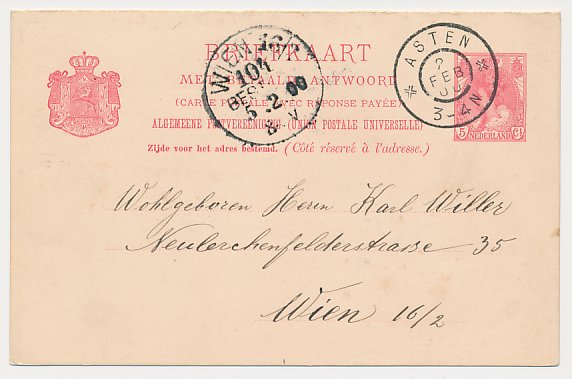 BRIEFKAART
MET BETAALD ANTWOORD
(CARTE POSTALE AVEC RÉPONSE PAYÉE)
ALGEMEENE POSTVEREENIGING (UNION POSTALE UNIVERSELLE)
Zijde voor het adres bestemd. (Côté réservé à l'adresse.)
WIEN
101
BEST
5.2.00
8 V
ASTEN
2
FEB
00
3-4N
5 Ct
NEDERLAND
Wohlgeboren Herrn Karl Willer
Neulerchenfelderstrasse 35
Wien 16/2